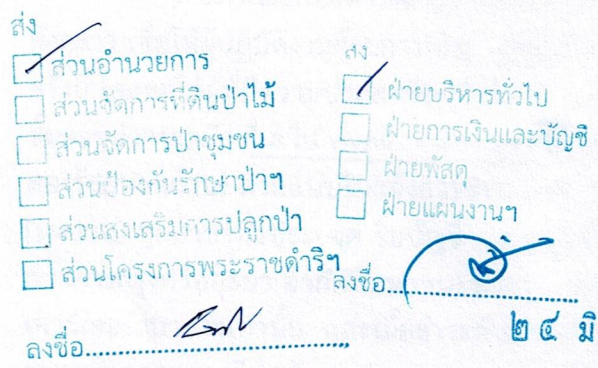 ส่ง
ส่วนอำนวยการ
ส่วนจัดการที่ดินป่าไม้
ส่วนจัดการป่าชุมชน
ส่วนป้องกันรักษาป่าฯ
ส่วนส่งเสริมการปลูกป่า
ส่วนโครงการพระราชดำริฯ
ลงชื่อ
ส่ง
ฝ่ายบริหารทั่วไป
ฝ่ายการเงินและบัญชี
ฝ่ายพัสดุ
ฝ่ายแผนงานฯ
ลงชื่อ
๒๔ มิ